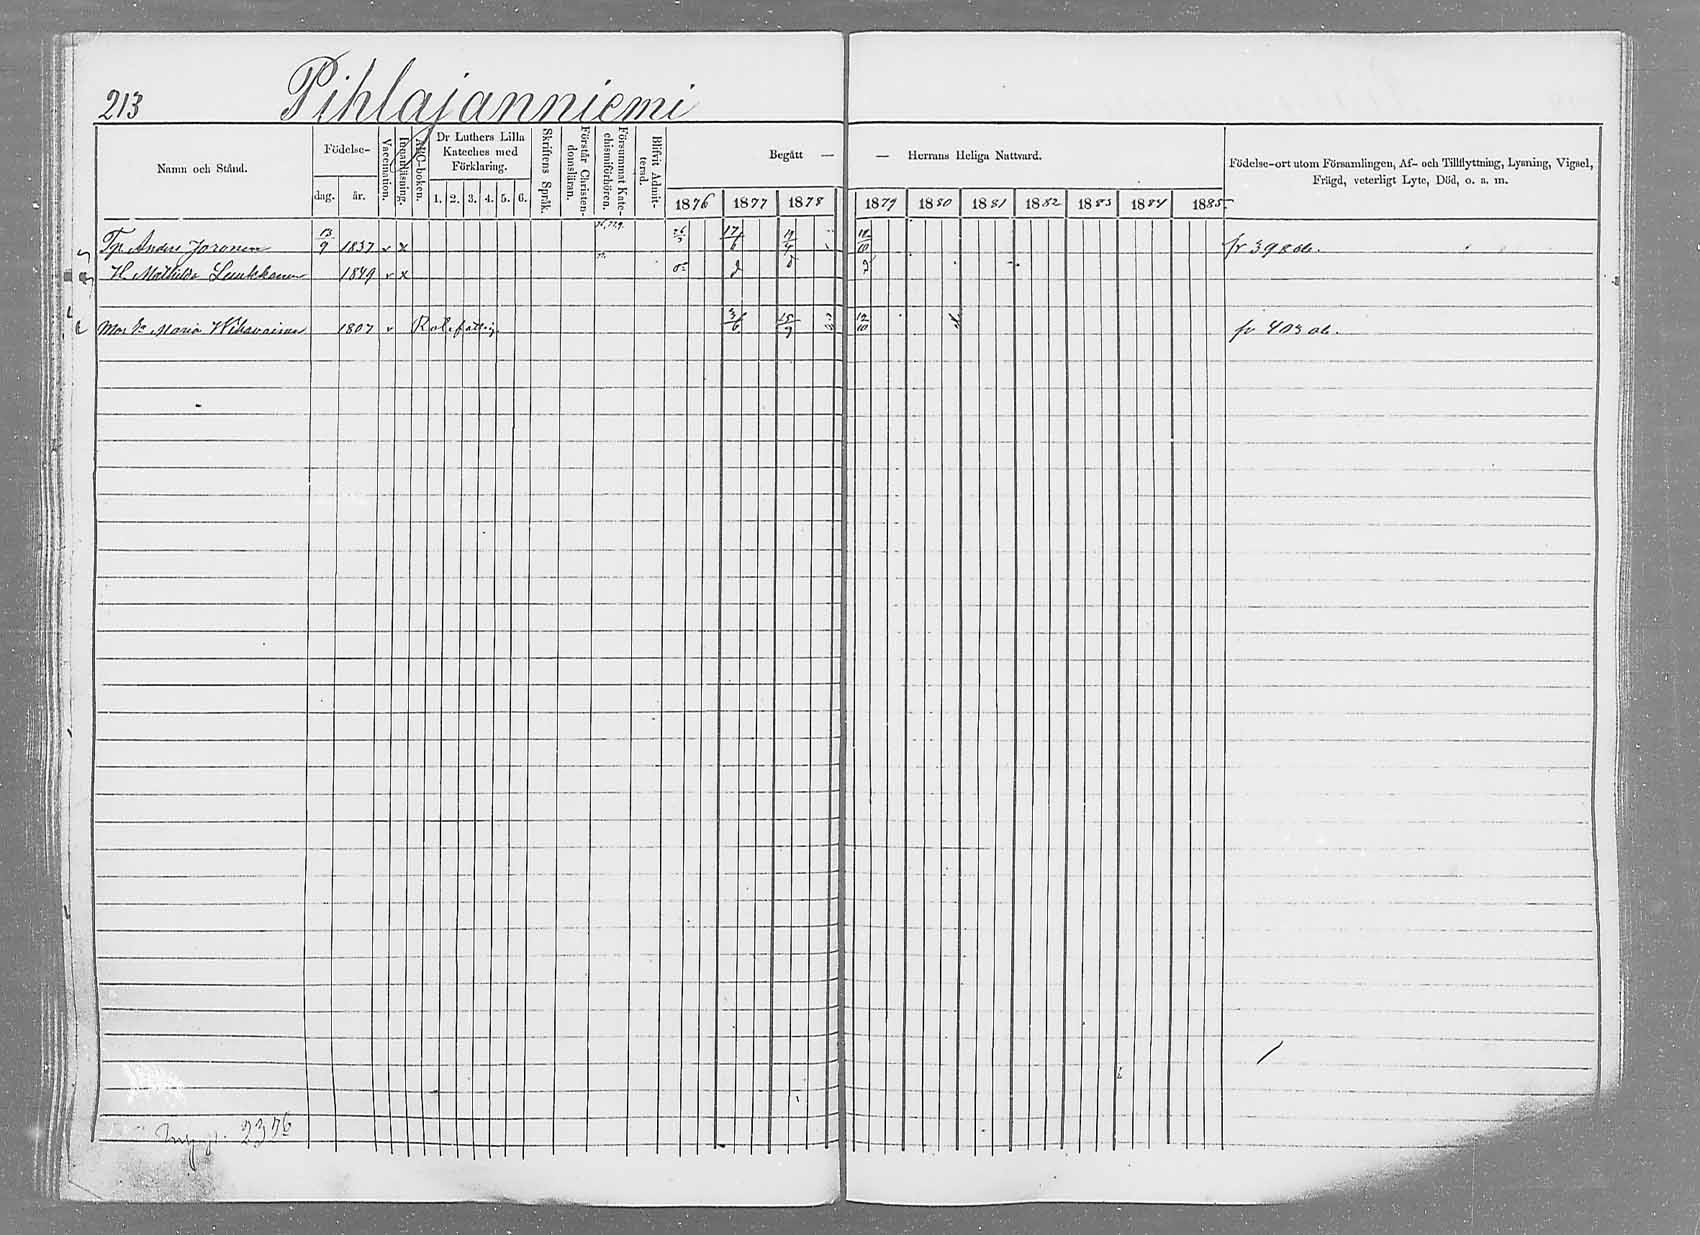 213 Pihlajanniemi
Namn och Stånd.
Födelse-
dag. år.
Vaccination.
Innanläsning.
ABC-boken.
Dr Luthers Lilla
Kateches med
Förklaring.
1. 2. 3. 4. 5. 6.
Skriftens Språk.
Förstår Christen-
domsläran.
Försummat Kate-
chismiförhören.
Blifvit Admit-
terad.
Begått — — Herrans Heliga Nattvard.
1876 1877 1878 1879 1880 1881 1882 1883 1884 1885
Födelse-ort utom Församlingen, Af- och Tillflyttning, Lysning, Vigsel,
Frägd, veterligt Lyte, Död, o. s. m.
Anders Joronen 13/9 1837 v x 17/6 fr 398
H. Mathilda Luukkonen 1849 v x
Maria 1807 v 3/6 15/9 12/10 fr 403
2376